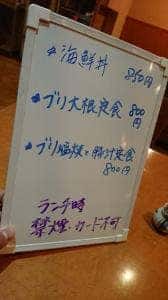 ・海鮮丼 850円
・ブリ大根定食 800円
・ブリ塩焼と豚汁定食
800円
ランチ時
禁煙・カード不可